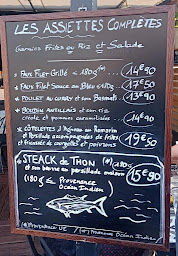 LES ASSIETTES COMPLÈTES
Garnies Frites ou Riz et Salade
FAUX FILET GRILLÉ 180g 14€90
FAUX FILET SAUCE AU BLEU 17€50
POULET AU CURRY et son 13€90
BOUDIN ANTILLAIS et son riz
créole et pommes caramélisées 14€90
CÔTELETTES D'AGNEAU AU ROMARIN
de frites
et poivrons 19€50
STEACK DE THON (*) 180g
et son beurre en persillade maison 15€90
(180g) Provenance
Océan Indien
PROVENANCE UE / (*) Océan Indien